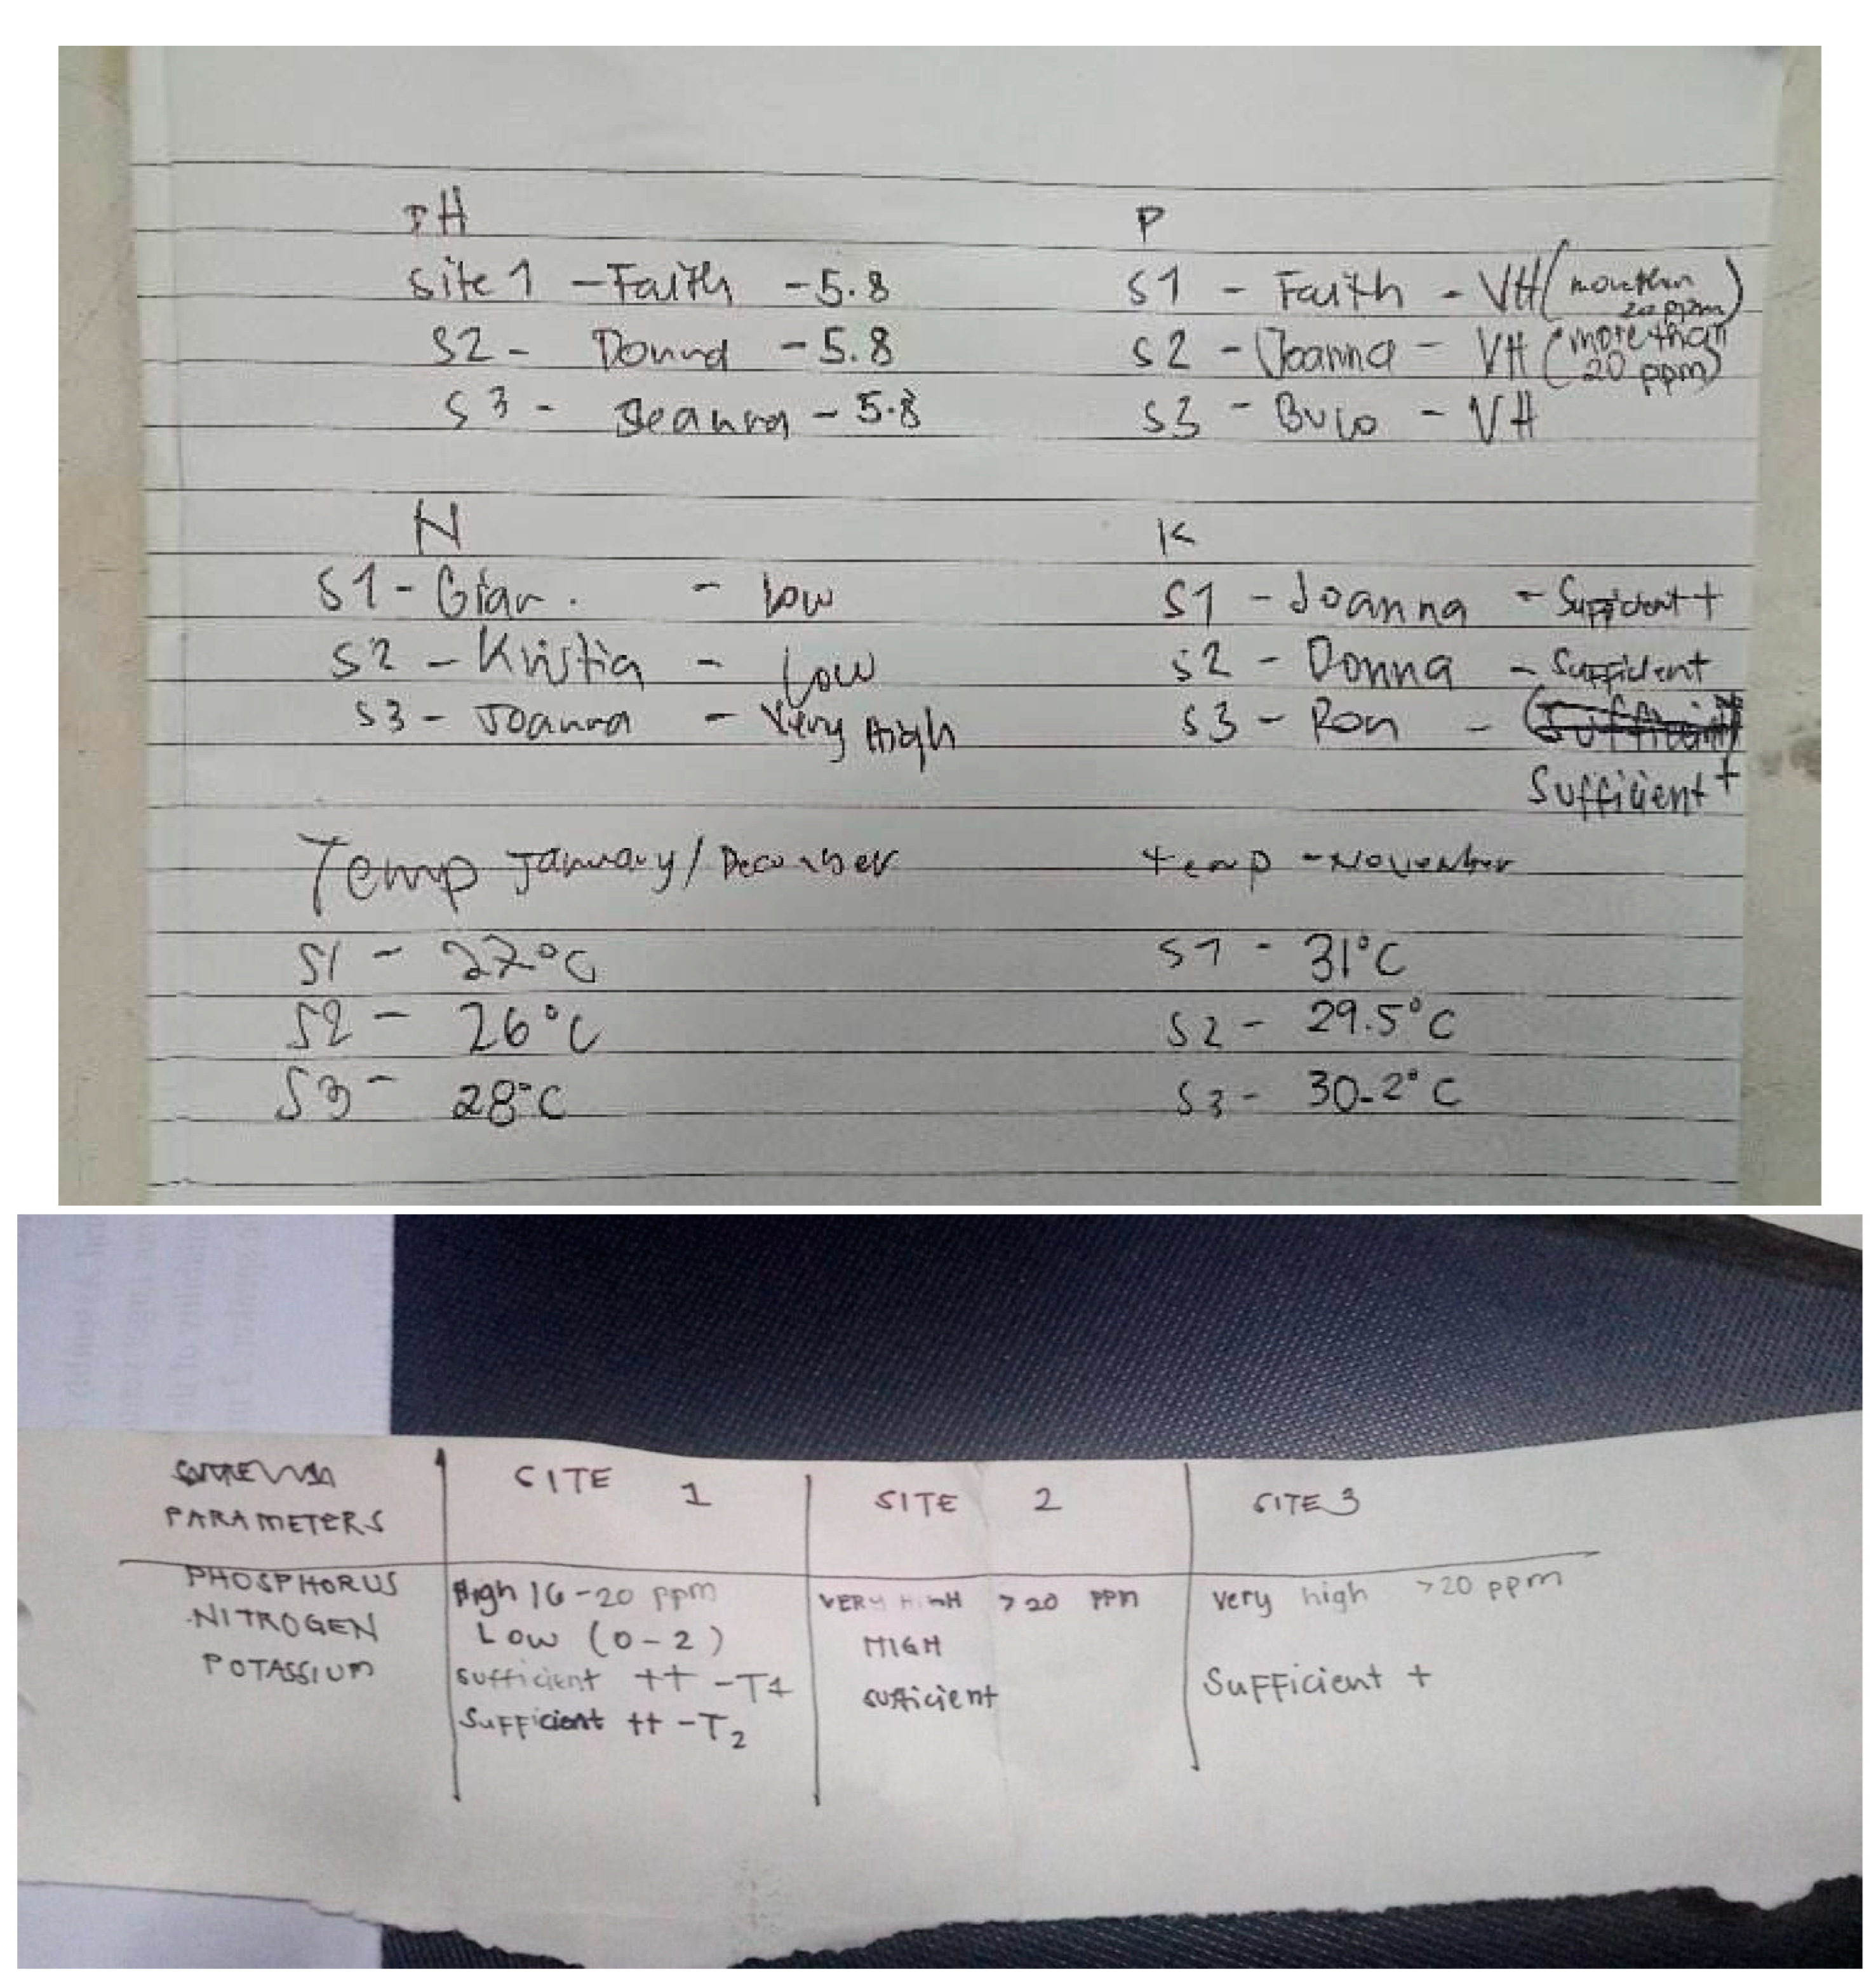 pH
Site 1 - Faith - 5.8
S2 - Donna - 5.8
S3 - Deanna - 5.8
P
S1 - Faith - VH (more than 20 ppm)
S2 - Joanna - VH (more than 20 ppm)
S3 - Buco - VH
N
S1 - Gian. - low
S2 - Kristia - Low
S3 - Joanna - Very High
K
S1 - Joanna - Sufficient +
S2 - Donna - Sufficient
S3 - Ron -
Sufficient +
Temp January/December
S1 - 27°C
S2 - 26°C
S3 - 28°C
temp - November
S1 - 31°C
S2 - 29.5°C
S3 - 30.2°C
PARAMETERS
SITE 1
SITE 2
SITE 3
PHOSPHORUS
High 16-20 ppm
VERY HIGH >20 PPM
very high >20 ppm
NITROGEN
Low (0-2)
HIGH
POTASSIUM
sufficient ++ -T1
sufficient
Sufficient +
Sufficient ++ -T2